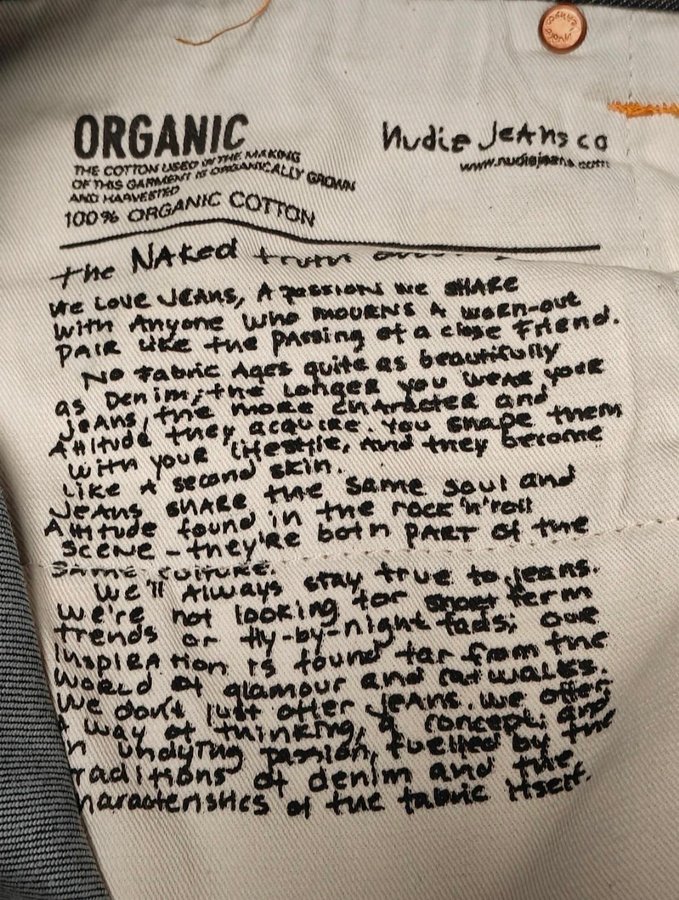 ORGANIC
THE COTTON USED IN THE MAKING
OF THIS GARMENT IS ORGANICALLY GROWN
AND HARVESTED
100% ORGANIC COTTON
Nudie Jeans co
www.nudiejeans.com
the NAKed truth
We Love JeANS, A passion we SHARe
with Anyone who mourns A worn-out
pair like the passing of a close Friend.
No Fabric Ages quite as beautifully
as Denim; the longer you wear your
JeANS, the more character and
Attitude they acquire. You shape them
with your lifestyle, and they become
like A second skin.
Jeans share the same soul and
Attitude found in the rock'n'roll
scene - they're both PART of the
same culture.
We'll Always stay true to jeans.
We're not looking for short term
trends or fly-by-night fads; our
inspiration is found far from the
world of glamour and catwalks.
We don't just offer jeans. We offer
A way of thinking, a concept, and
n undying passion, fuelled by the
raditions of denim and the
haracteristics of the fabric itself.